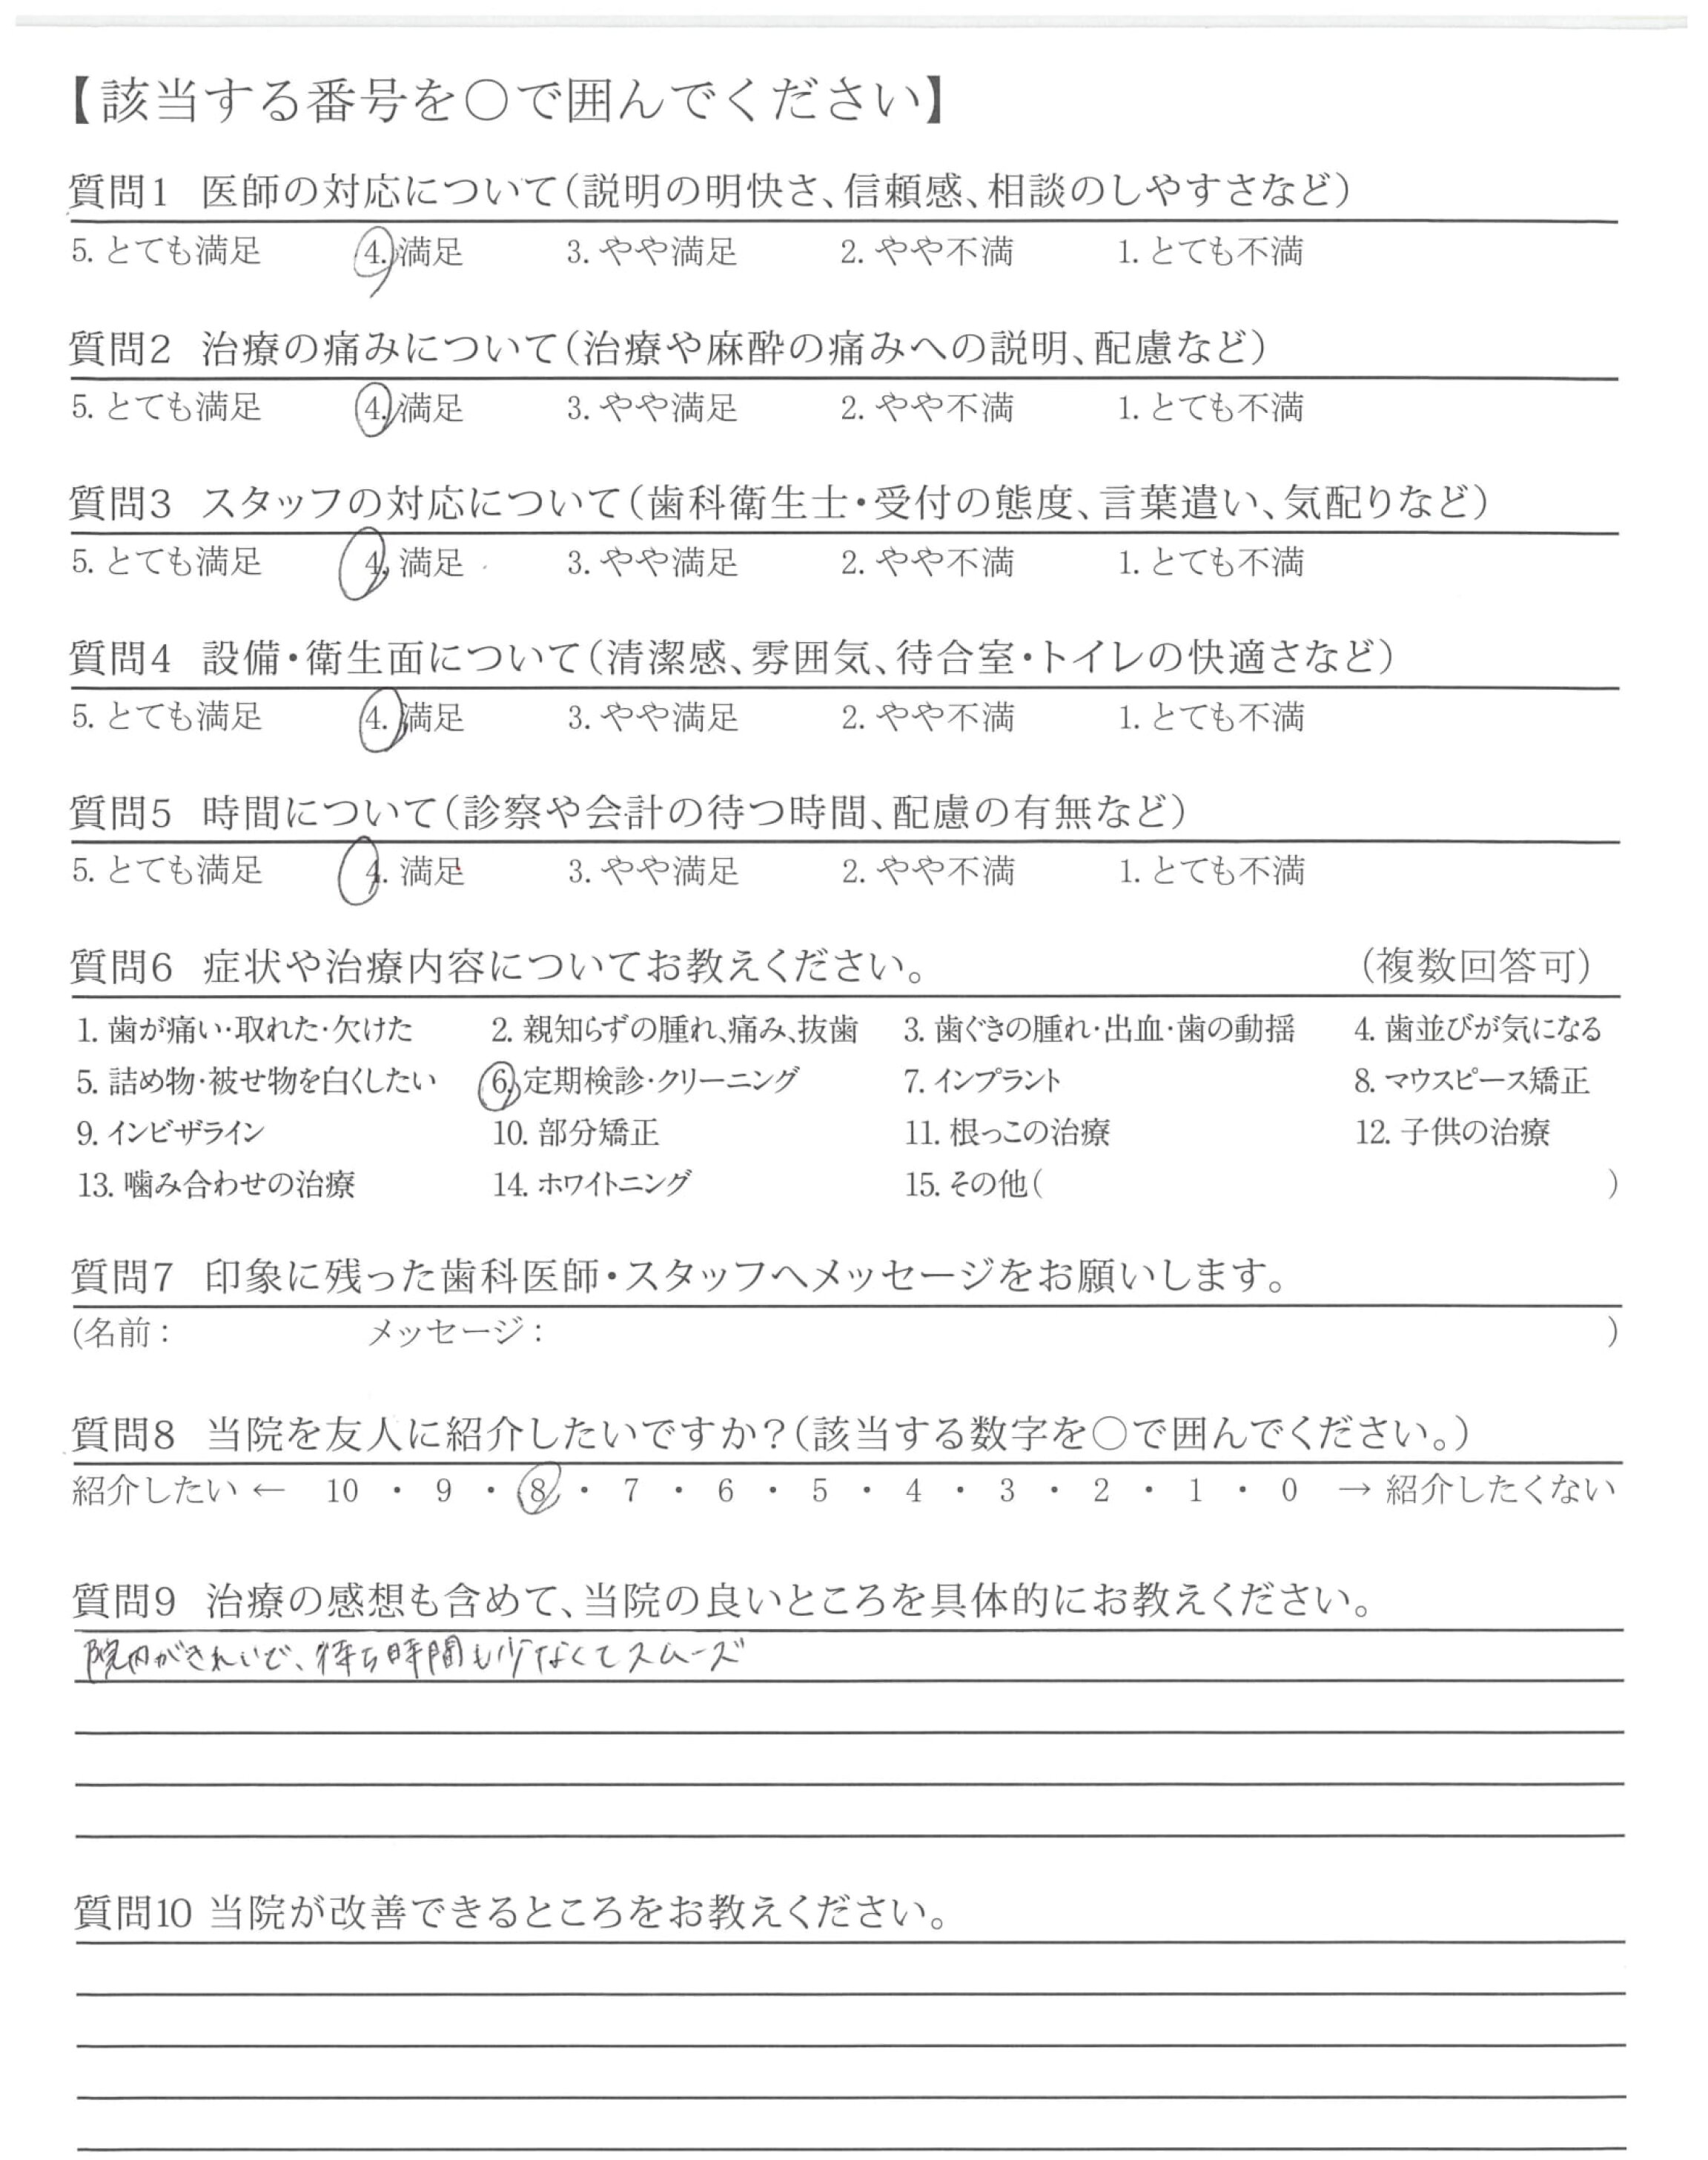 【該当する番号を○で囲んでください】
質問1 医師の対応について(説明の明快さ、信頼感、相談のしやすさなど)
5. とても満足 4. 満足 3. やや満足 2. やや不満 1. とても不満
質問2 治療の痛みについて(治療や麻酔の痛みへの説明、配慮など)
5. とても満足 4. 満足 3. やや満足 2. やや不満 1. とても不満
質問3 スタッフの対応について(歯科衛生士・受付の態度、言葉遣い、気配りなど)
5. とても満足 4. 満足 3. やや満足 2. やや不満 1. とても不満
質問4 設備・衛生面について(清潔感、雰囲気、待合室・トイレの快適さなど)
5. とても満足 4. 満足 3. やや満足 2. やや不満 1. とても不満
質問5 時間について(診察や会計の待つ時間、配慮の有無など)
5. とても満足 4. 満足 3. やや満足 2. やや不満 1. とても不満
質問6 症状や治療内容についてお教えください。 (複数回答可)
1. 歯が痛い・取れた・欠けた 2. 親知らずの腫れ、痛み、抜歯 3. 歯ぐきの腫れ・出血・歯の動揺 4. 歯並びが気になる
5. 詰め物・被せ物を白くしたい 6. 定期検診・クリーニング 7. インプラント 8. マウスピース矯正
9. インビザライン 10. 部分矯正 11. 根っこの治療 12. 子供の治療
13. 噛み合わせの治療 14. ホワイトニング 15. その他( )
質問7 印象に残った歯科医師・スタッフへメッセージをお願いします。
(名前: メッセージ: )
質問8 当院を友人に紹介したいですか?(該当する数字を○で囲んでください。)
紹介したい ← 10 ・ 9 ・ 8 ・ 7 ・ 6 ・ 5 ・ 4 ・ 3 ・ 2 ・ 1 ・ 0 → 紹介したくない
質問9 治療の感想も含めて、当院の良いところを具体的にお教えください。
院内がきれいで、待ち時間も少なくてスムーズ
質問10 当院が改善できるところをお教えください。